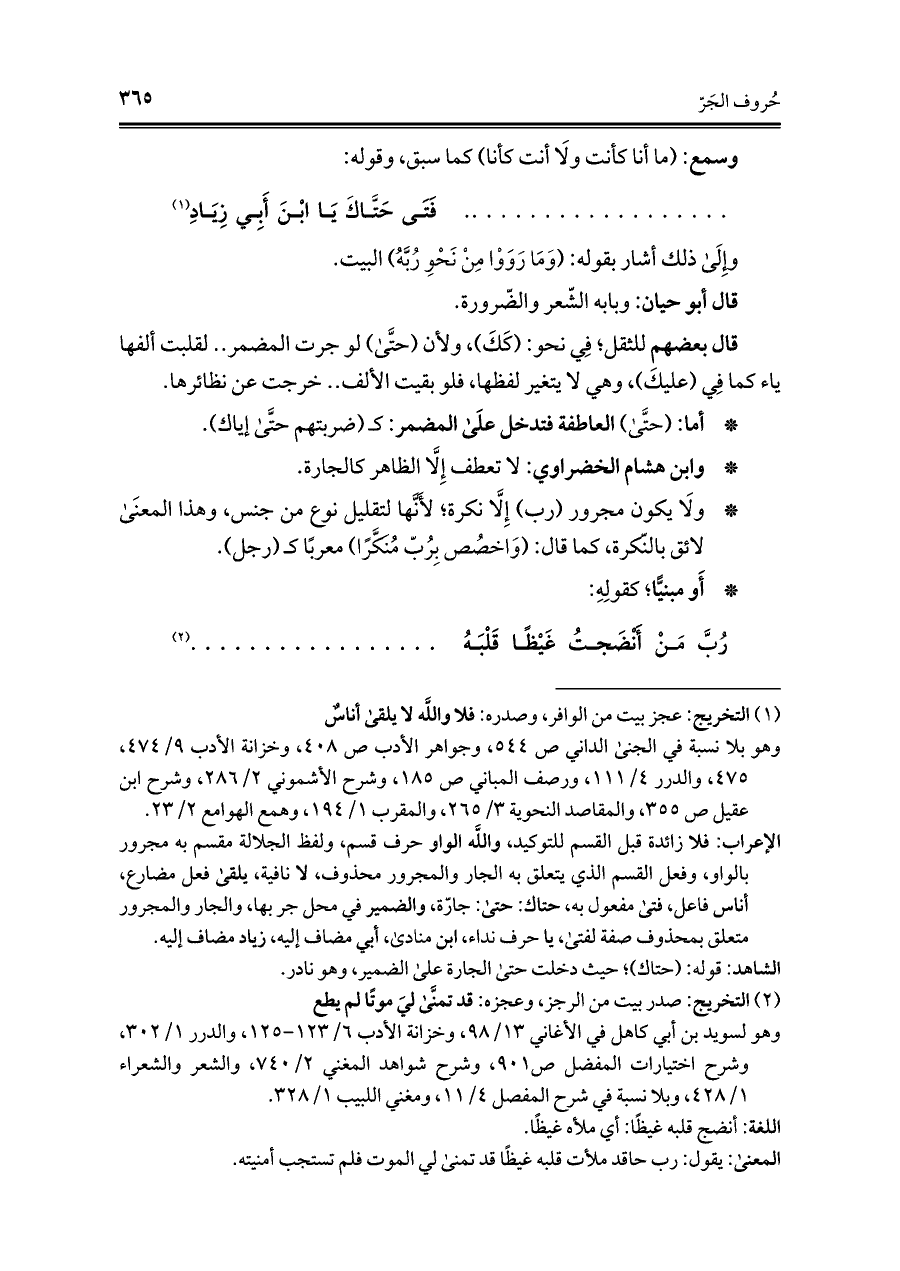 حُروف الجَرّ ٣٦٥
وسمع: (ما أنا كأنت ولَا أنت كأنا) كما سبق، وقوله:
. . . . . . . . . . . . . . . . . .. فَتَـى حَتَّـاكَ يَـا ابْـنَ أَبِـي زِيَـادِ(١)
وإِلَىٰ ذلك أشار بقوله: (وَمَا رَوَوْا مِنْ نَحْوِ رُبَّهُ) البيت.
قال أبو حيان: وبابه الشّعر والضّرورة.
قال بعضهم للثقل؛ فِي نحو: (كَكَ)، ولأن (حتَّىٰ) لو جرت المضمر.. لقلبت ألفها
ياء كما فِي (عليكَ)، وهي لا يتغير لفظها، فلو بقيت الألف.. خرجت عن نظائرها.
* أما: (حتَّىٰ) العاطفة فتدخل علَىٰ المضمر: كـ (ضربتهم حتَّىٰ إياك).
* وابن هشام الخضراوي: لا تعطف إِلَّا الظاهر كالجارة.
* ولَا يكون مجرور (رب) إِلَّا نكرة؛ لأَنَّها لتقليل نوع من جنس، وهذا المعنَىٰ
لائق بالنّكرة، كما قال: (وَاخصُص بِرُبّ مُنَكَّرًا) معربًا كـ (رجل).
* أَو مبنيًّا؛ كقولِهِ:
رُبَّ مَـنْ أَنْضَجـتُ غَيْظًـا قَلْبَـهُ . . . . . . . . . . . . . . . . .(٢)
(١) التخريج: عجز بيت من الوافر، وصدره: فلا واللَّه لا يلقىٰ أناسٌ
وهو بلا نسبة في الجنىٰ الداني ص ٥٤٤، وجواهر الأدب ص ٤٠٨، وخزانة الأدب ٩/ ٤٧٤،
٤٧٥، والدرر ٤/ ١١١، ورصف المباني ص ١٨٥، وشرح الأشموني ٢/ ٢٨٦، وشرح ابن
عقيل ص ٣٥٥، والمقاصد النحوية ٣/ ٢٦٥، والمقرب ١/ ١٩٤، وهمع الهوامع ٢/ ٢٣.
الإعراب: فلا زائدة قبل القسم للتوكيد، واللَّه الواو حرف قسم، ولفظ الجلالة مقسم به مجرور
بالواو، وفعل القسم الذي يتعلق به الجار والمجرور محذوف، لا نافية، يلقىٰ فعل مضارع،
أناس فاعل، فتىٰ مفعول به، حتاك: حتىٰ: جارّة، والضمير في محل جر بها، والجار والمجرور
متعلق بمحذوف صفة لفتىٰ، يا حرف نداء، ابن منادىٰ، أبي مضاف إليه، زياد مضاف إليه.
الشاهد: قوله: (حتاك)؛ حيث دخلت حتىٰ الجارة علىٰ الضمير، وهو نادر.
(٢) التخريج: صدر بيت من الرجز، وعجزه: قد تمنَّىٰ ليَ موتًا لم يطع
وهو لسويد بن أبي كاهل في الأغاني ١٣/ ٩٨، وخزانة الأدب ٦/ ١٢٣-١٢٥، والدرر ١/ ٣٠٢،
وشرح اختيارات المفضل ص٩٠١، وشرح شواهد المغني ٢/ ٧٤٠، والشعر والشعراء
١/ ٤٢٨، وبلا نسبة في شرح المفصل ٤/ ١١، ومغني اللبيب ١/ ٣٢٨.
اللغة: أنضج قلبه غيظًا: أي ملأه غيظًا.
المعنىٰ: يقول: رب حاقد ملأت قلبه غيظًا قد تمنىٰ لي الموت فلم تستجب أمنيته.